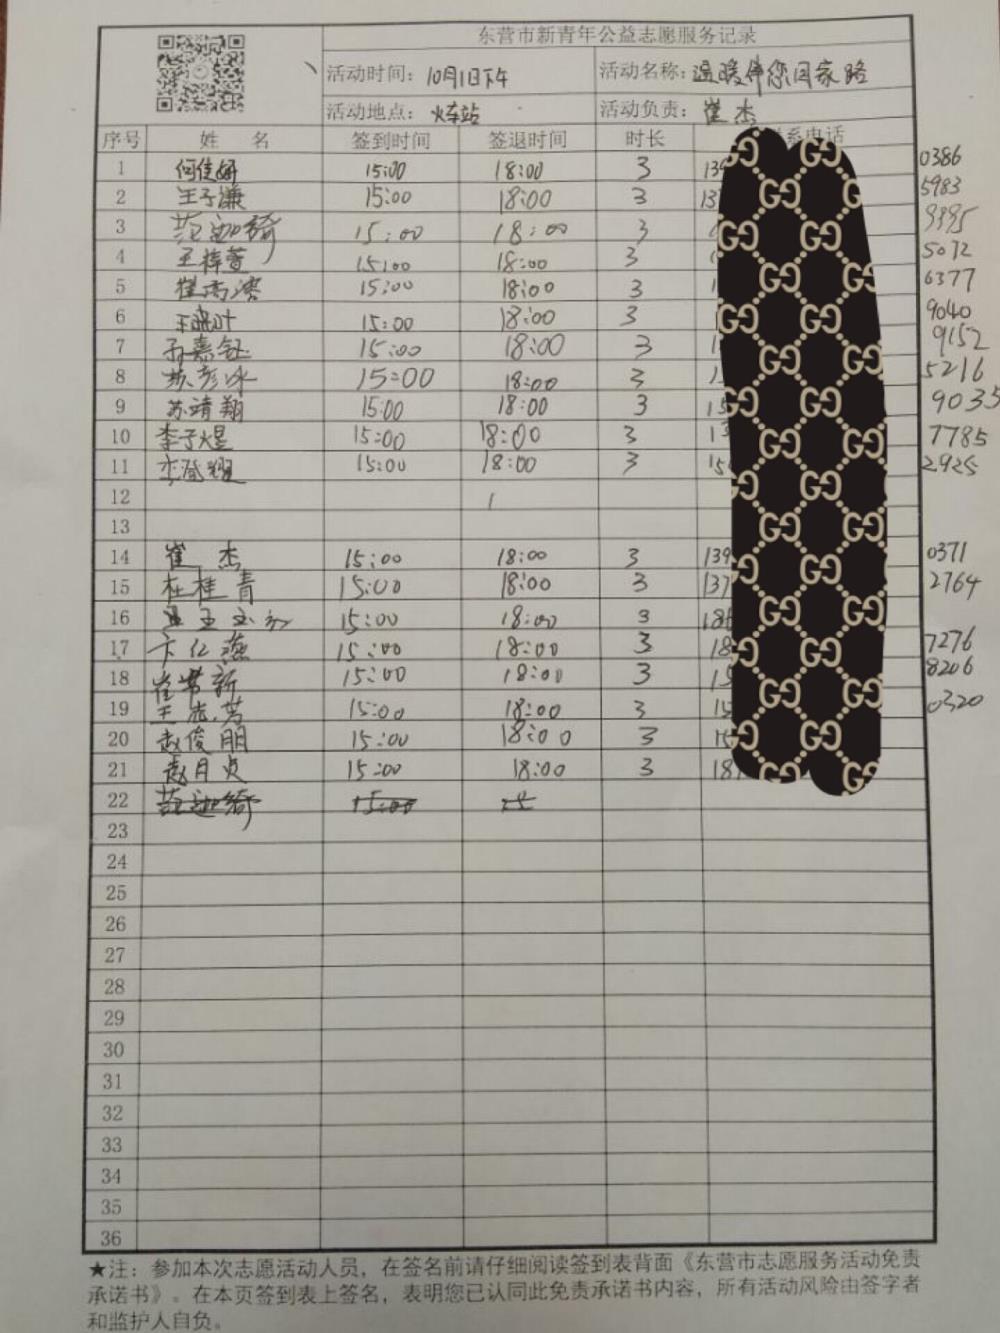 东营市新青年公益志愿服务记录
活动时间：10月1日下午 活动名称：温暖伴您回家路
活动地点：火车站 活动负责：崔杰
序号 姓 名 签到时间 签退时间 时长 系电话
1 何佳妍 15:00 18:00 3 139 0386
2 王子谦 15:00 18:00 3 13 5983
3 范迦绮 15:00 18:00 3 9395
4 王梓萱 15:00 18:00 3 1 5072
5 崔 15:00 18:00 3 1 6377
6 王 15:00 18:00 3 1 9040
7 孙嘉钰 15:00 18:00 3 1 9152
8 彭冰 15:00 18:00 3 1 5216
9 苏靖翔 15:00 18:00 3 15 9035
10 李子煜 15:00 18:00 3 13 7785
11 李 耀 15:00 18:00 3 15 2925
12
13
14 崔 杰 15:00 18:00 3 139 0371
15 杜桂青 15:00 18:00 3 137 2764
16 王玉 15:00 18:00 3 18
17 卞仁燕 15:00 18:00 3 18 7276
18 崔 新 15:00 18:00 3 15 8206
19 王志芳 15:00 18:00 3 15 0320
20 赵俊朋 15:00 18:00 3 15
21 赵月贞 15:00 18:00 3 18
22 范迦绮 15:00
23
24
25
26
27
28
29
30
31
32
33
34
35
36
★注：参加本次志愿活动人员，在签名前请仔细阅读签到表背面《东营市志愿服务活动免责
承诺书》。在本页签到表上签名，表明您已认同此免责承诺书内容，所有活动风险由签字者
和监护人自负。